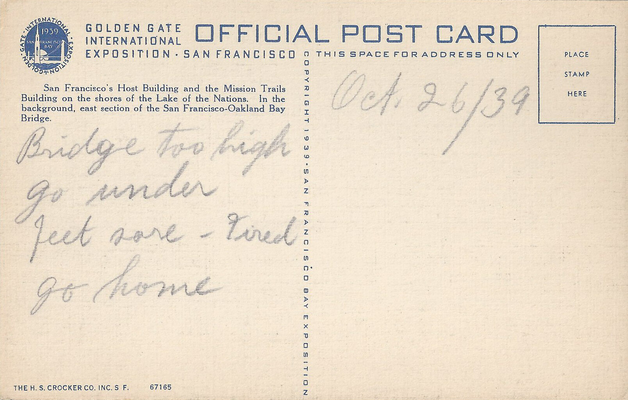 GOLDEN GATE INTERNATIONAL EXPOSITION
1939
SAN FRANCISCO BAY
GOLDEN GATE
INTERNATIONAL
EXPOSITION · SAN FRANCISCO
OFFICIAL POST CARD
THIS SPACE FOR ADDRESS ONLY
PLACE
STAMP
HERE
San Francisco's Host Building and the Mission Trails
Building on the shores of the Lake of the Nations. In the
background, east section of the San Francisco-Oakland Bay
Bridge.
Bridge too high
go under
feet sore - Tired
go home
COPYRIGHT 1939 · SAN FRANCISCO BAY EXPOSITION
Oct. 26/39
THE H. S. CROCKER CO. INC. S F. 67165